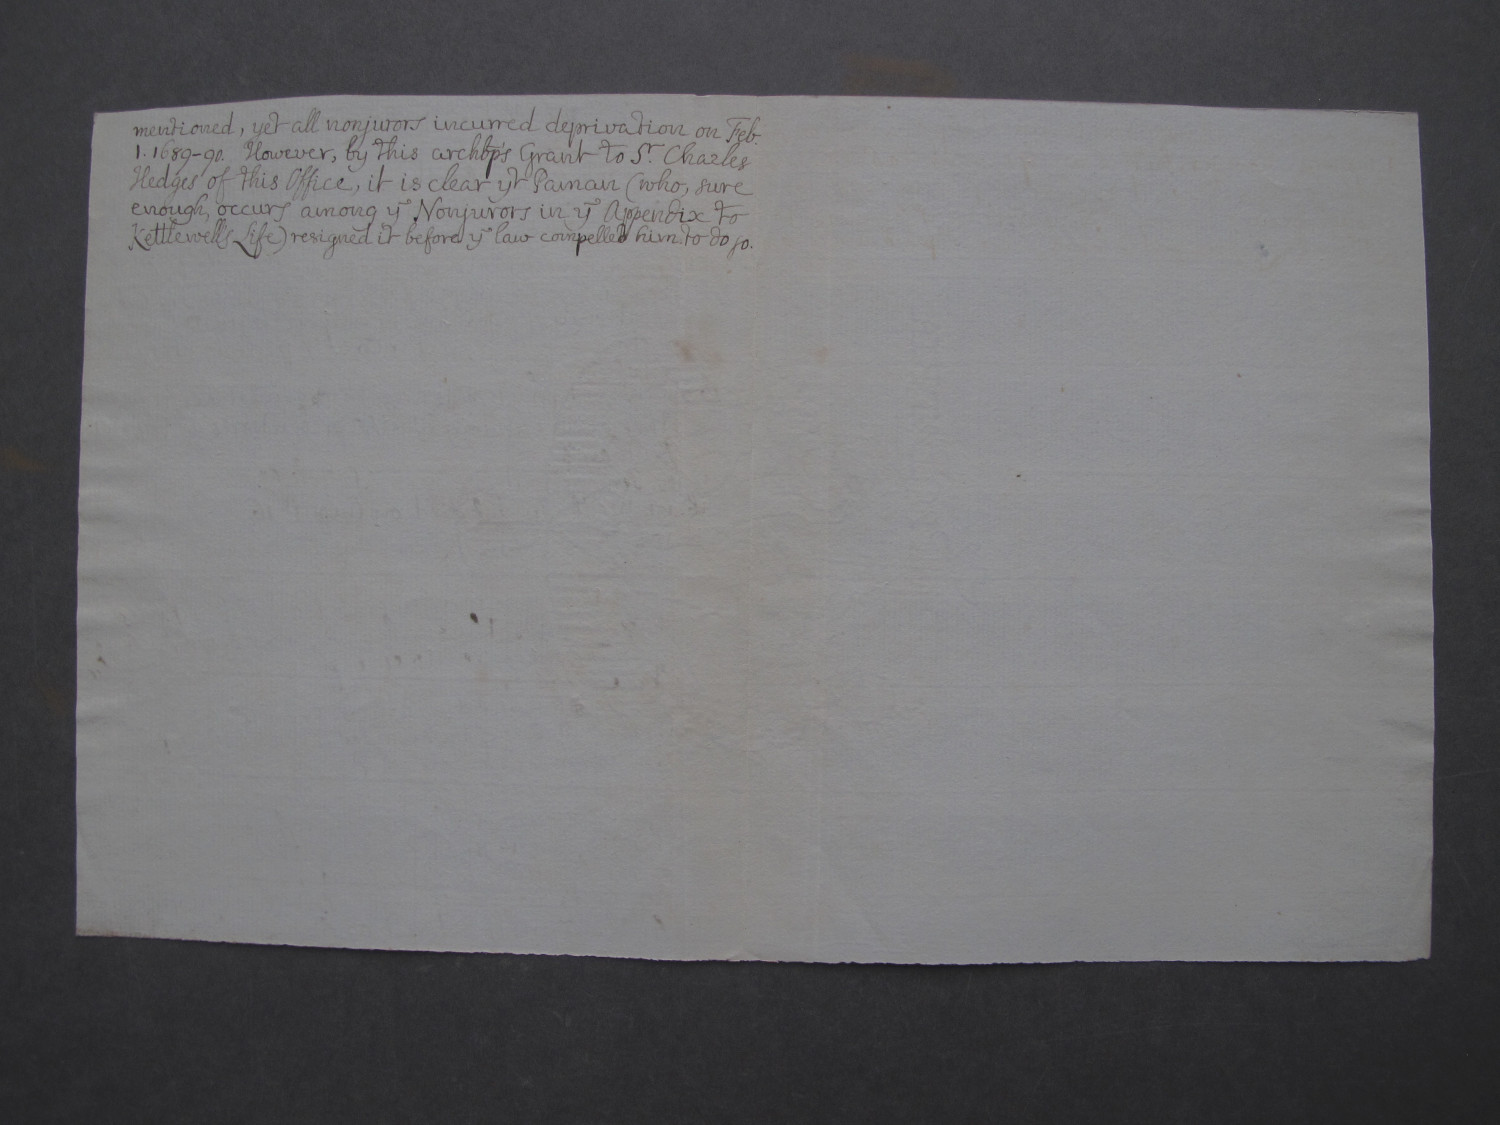 mentioned, yet all nonjurors incurred deprivation on Feb.
1. 1689-90. However, by this archbps Grant to Sr. Charles
Hedges of this Office, it is clear yt Paman (who, sure
enough, occurs among ye Nonjurors in ye Appendix to
Kettlewell's Life) resigned it before ye law compelled him to do so.